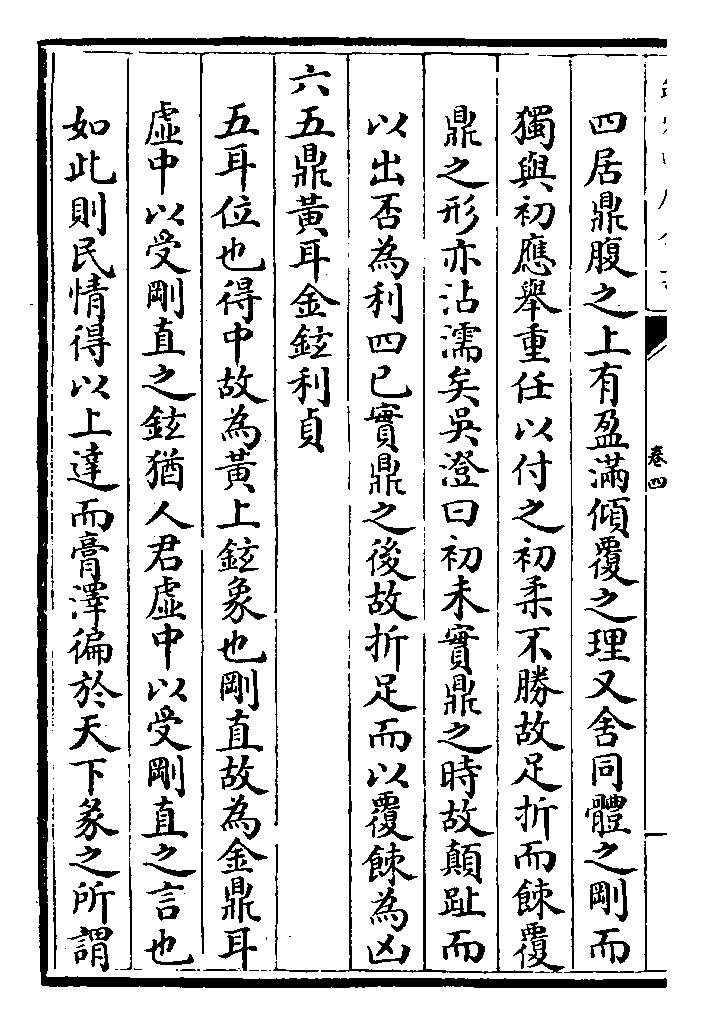 卷四
四居鼎腹之上有盈滿傾覆之理又舍同體之剛而
獨與初應舉重任以付之初柔不勝故足折而餗覆
鼎之形亦沾濡矣吳澄曰初未實鼎之時故顛趾而
以出否為利四已實鼎之後故折足而以覆餗為凶
六五鼎黃耳金鉉利貞
五耳位也得中故為黃上鉉象也剛直故為金鼎耳
虛中以受剛直之鉉猶人君虛中以受剛直之言也
如此則民情得以上達而膏澤徧於天下彖之所謂